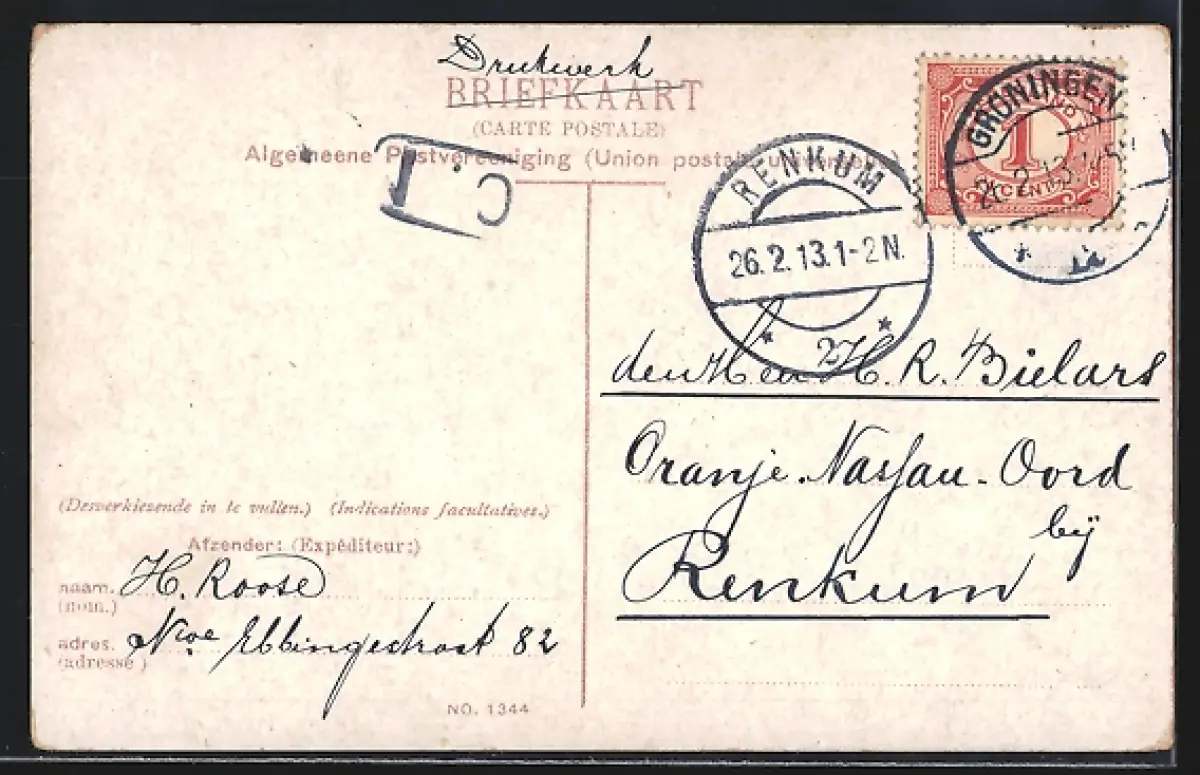 Drukwerk
BRIEFKAART
(CARTE POSTALE)
Algemeene Postvereeniging (Union postale universelle)
C.1
GRONINGEN
26.2.13.
1
CENT
RENKUM
26.2.13.1-2N.
2
den Heer H. R. Bielars
Oranje Nassau-Oord
bij
Renkum
(Desverkiezende in te vullen.) (Indications facultatives.)
Afzender: (Expéditeur:)
naam. H. Roose
(nom.)
adres. Nwe Ebbingestraat 82
(adresse)
NO. 1344